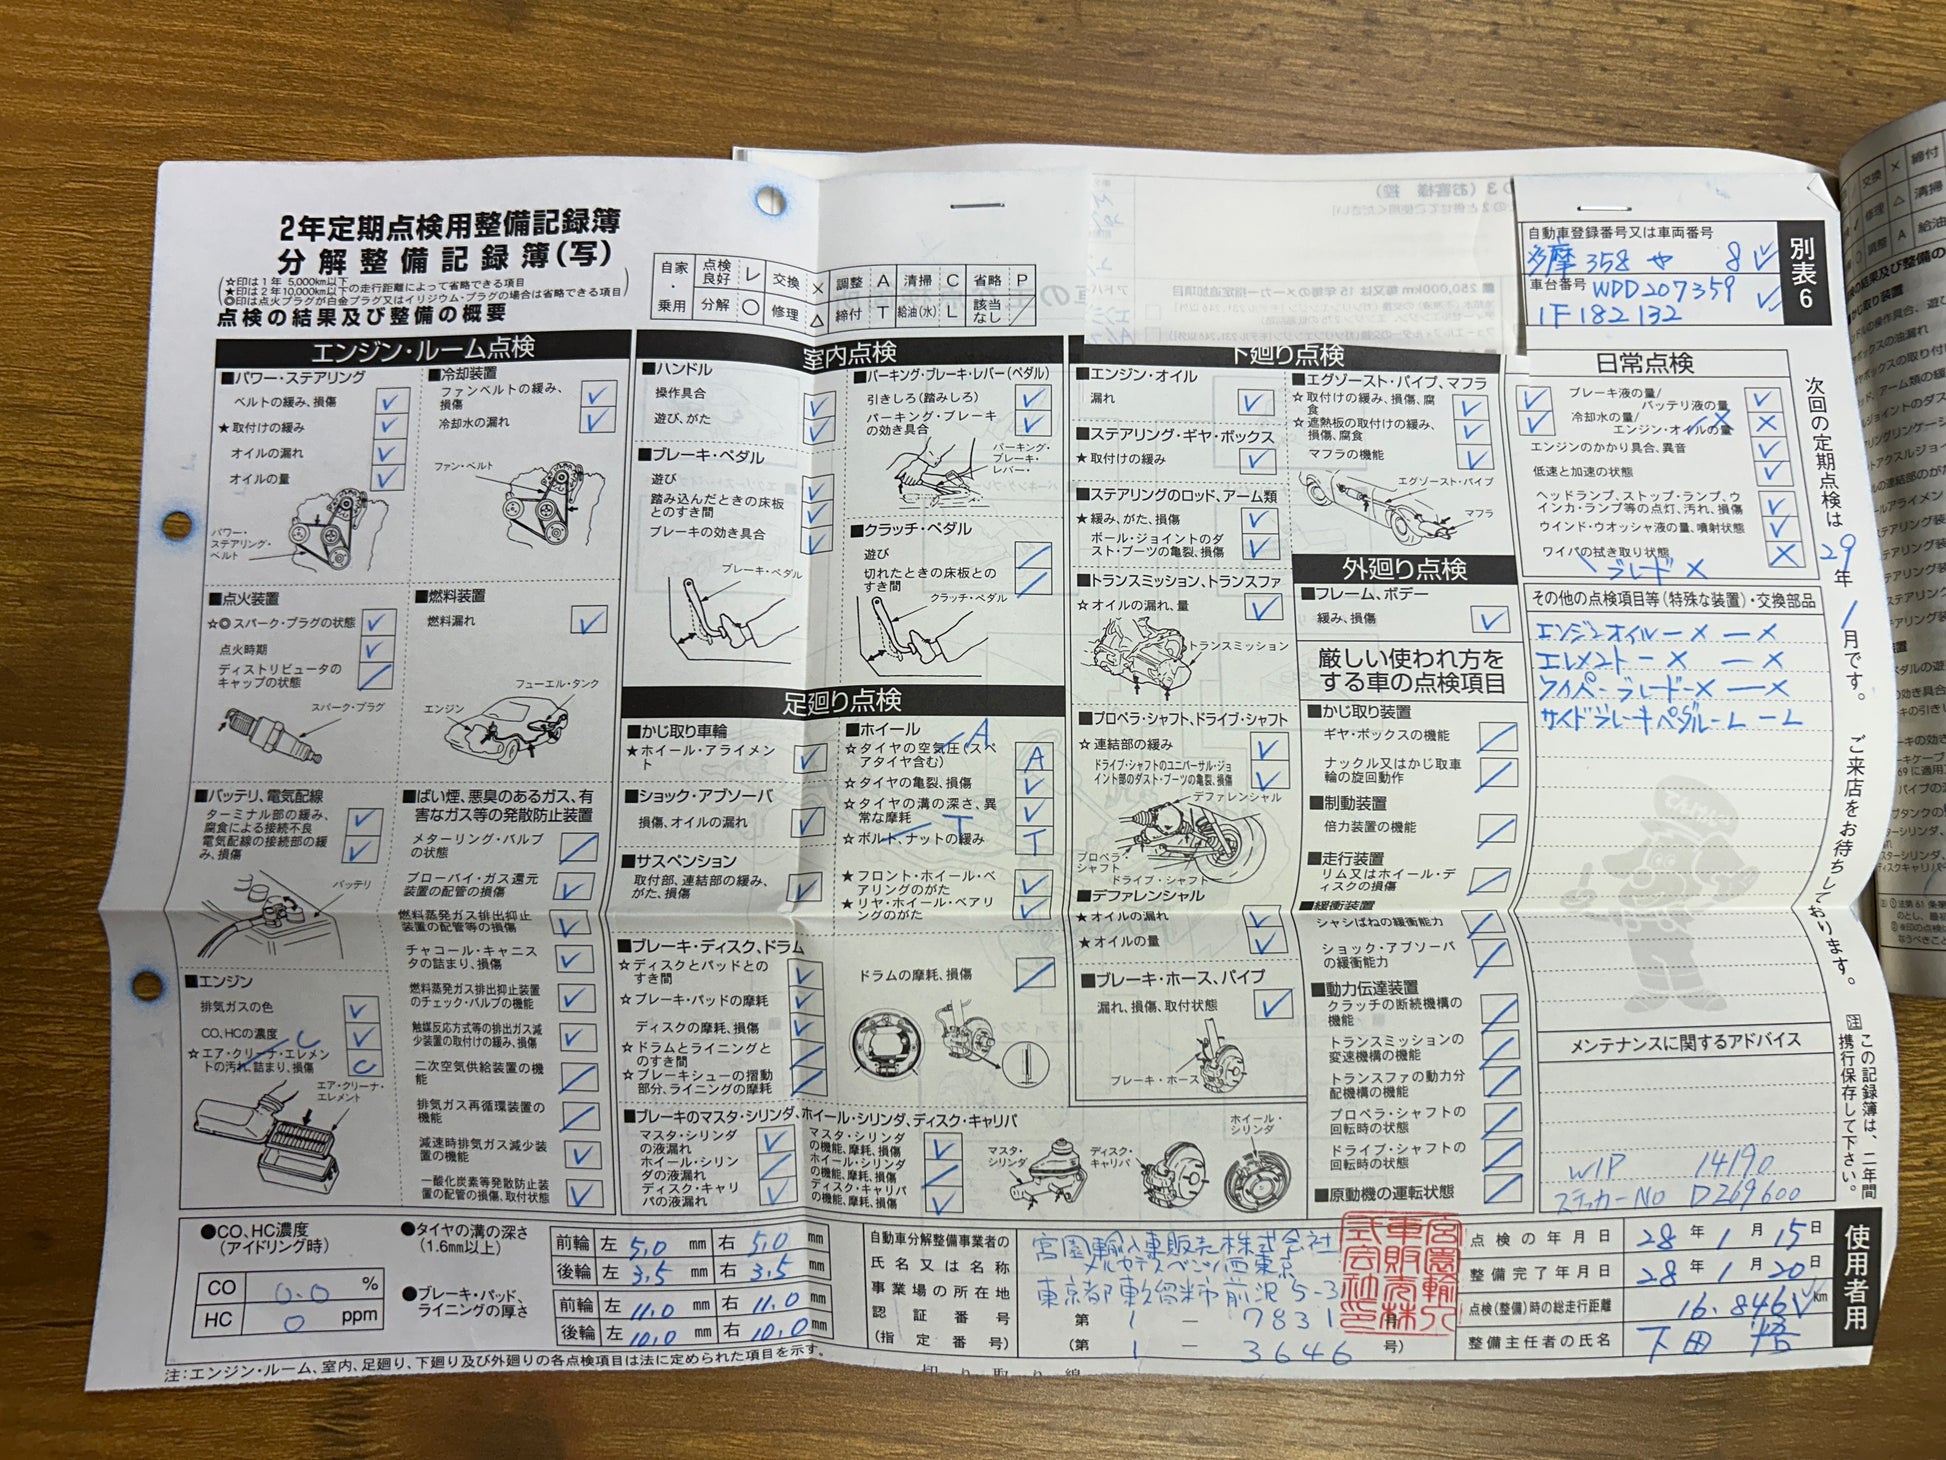 2年定期点検用整備記録簿
分解整備記録簿(写)
☆印は1年 5,000km以下
★印は2年10,000km以下の走行距離によって省略できる項目
◎印は点火プラグが白金プラグ又はイリジウム・プラグの場合は省略できる項目
点検の結果及び整備の概要
自家・乗用
点検良好 レ 交換 × 調整 A 清掃 C 省略 P
分解 ○ 修理 △ 締付 T 給油(水) L 該当なし /
自動車登録番号又は車両番号
多摩 358 や 8
車台番号 WDD207359
1F182132
別表6
エンジン・ルーム点検
■パワー・ステアリング
ベルトの緩み、損傷
★取付けの緩み
オイルの漏れ
オイルの量
パワー・ステアリング・ベルト
■冷却装置
ファンベルトの緩み、損傷
冷却水の漏れ
ファン・ベルト
■点火装置
☆◎スパーク・プラグの状態
点火時期
ディストリビュータのキャップの状態
スパーク・プラグ
■燃料装置
燃料漏れ
フューエル・タンク
エンジン
■バッテリ、電気配線
ターミナル部の緩み、腐食による接続不良
電気配線の接続部の緩み、損傷
バッテリ
■エンジン
排気ガスの色
CO、HCの濃度
C
☆エア・クリーナ・エレメントの汚れ、詰まり、損傷 C
エア・クリーナ・エレメント
■ばい煙、悪臭のあるガス、有害なガス等の発散防止装置
メターリング・バルブの状態
ブローバイ・ガス還元装置の配管の損傷
燃料蒸発ガス排出抑止装置の配管等の損傷
チャコール・キャニスタの詰まり、損傷
燃料蒸発ガス排出抑止装置のチェック・バルブの機能
触媒反応方式等の排出ガス減少装置の取付けの緩み、損傷
二次空気供給装置の機能
排気ガス再循環装置の機能
減速時排気ガス減少装置の機能
一酸化炭素等発散防止装置の配管の損傷、取付状態
室内点検
■ハンドル
操作具合
遊び、がた
■ブレーキ・ペダル
遊び
踏み込んだときの床板とのすき間
ブレーキの効き具合
ブレーキ・ペダル
■パーキング・ブレーキ・レバー(ペダル)
引きしろ(踏みしろ)
パーキング・ブレーキの効き具合
パーキング・ブレーキ・レバー・
■クラッチ・ペダル
遊び
切れたときの床板とのすき間
クラッチ・ペダル
足廻り点検
■かじ取り車輪
★ホイール・アライメント
■ショック・アブソーバ
損傷、オイルの漏れ
■サスペンション
取付部、連結部の緩み、がた、損傷
■ホイール
A
☆タイヤの空気圧(スペアタイヤ含む) A
☆タイヤの亀裂、損傷
☆タイヤの溝の深さ、異常な摩耗
T
☆ボルト、ナットの緩み T
★フロント・ホイール・ベアリングのがた
★リヤ・ホイール・ベアリングのがた
■ブレーキ・ディスク、ドラム
☆ディスクとパッドとのすき間
☆ブレーキ・パッドの摩耗
ディスクの摩耗、損傷
☆ドラムとライニングとのすき間
☆ブレーキシューの摺動部分、ライニングの摩耗
ドラムの摩耗、損傷
■ブレーキのマスタ・シリンダ、ホイール・シリンダ、ディスク・キャリパ
マスタ・シリンダの液漏れ
ホイール・シリンダの液漏れ
ディスク・キャリパの液漏れ
マスタ・シリンダの機能、摩耗、損傷
ホイール・シリンダの機能、摩耗、損傷
ディスク・キャリパの機能、摩耗、損傷
マスタ・シリンダ
ディスク・キャリパ
ホイール・シリンダ
下廻り点検
■エンジン・オイル
漏れ
■ステアリング・ギヤ・ボックス
★取付けの緩み
■ステアリングのロッド、アーム類
★緩み、がた、損傷
ボール・ジョイントのダスト・ブーツの亀裂、損傷
■トランスミッション、トランスファ
☆オイルの漏れ、量
トランスミッション
■プロペラ・シャフト、ドライブ・シャフト
☆連結部の緩み
ドライブ・シャフトのユニバーサル・ジョイント部のダスト・ブーツの亀裂、損傷
デファレンシャル
プロペラ・シャフト
ドライブ・シャフト
■デファレンシャル
★オイルの漏れ
★オイルの量
■ブレーキ・ホース、パイプ
漏れ、損傷、取付状態
ブレーキ・ホース
■エグゾースト・パイプ、マフラ
☆取付けの緩み、損傷、腐食
☆遮熱板の取付けの緩み、損傷、腐食
マフラの機能
エグゾースト・パイプ
マフラ
外廻り点検
■フレーム、ボデー
緩み、損傷
厳しい使われ方をする車の点検項目
■かじ取り装置
ギヤ・ボックスの機能
ナックル又はかじ取車輪の旋回動作
■制動装置
倍力装置の機能
■走行装置
リム又はホイール・ディスクの損傷
■緩衝装置
シャシばねの緩衝能力
ショック・アブソーバの緩衝能力
■動力伝達装置
クラッチの断続機構の機能
トランスミッションの変速機構の機能
トランスファの動力分配機構の機能
プロペラ・シャフトの回転時の状態
ドライブ・シャフトの回転時の状態
■原動機の運転状態
日常点検
ブレーキ液の量/バッテリ液の量
冷却水の量/エンジン・オイルの量 ×
エンジンのかかり具合、異音
低速と加速の状態
ヘッドランプ、ストップ・ランプ、ウインカ・ランプ等の点灯、汚れ、損傷
ウインド・ウオッシャ液の量、噴射状態
ワイパの拭き取り状態 ×
ブレード ×
その他の点検項目等(特殊な装置)・交換部品
エンジンオイル－×－×
エレメント－×－×
ワイパーブレード－×－×
サイドブレーキペダル－L－L
メンテナンスに関するアドバイス
WIP 14190
ステッカーNO D269600
次回の定期点検は29年1月です。 ご来店をお待ちしております。
注 この記録簿は、二年間携行保存して下さい。
●CO、HC濃度(アイドリング時)
CO 0.0 %
HC 0 ppm
●タイヤの溝の深さ(1.6mm以上)
前輪 左 5.0 mm 右 5.0 mm
後輪 左 3.5 mm 右 3.5 mm
●ブレーキ・パッド、ライニングの厚さ
前輪 左 11.0 mm 右 11.0 mm
後輪 左 10.0 mm 右 10.0 mm
自動車分解整備事業者の氏名又は名称
事業場の所在地
認証番号
(指定番号)
宮園輸入車販売株式会社
メルセデスベンツ西東京
東京都東久留米市前沢5-3
第 1 － 7831 号
(第 1 － 3646 号)
宮園輸入車販売株式会社印
点検の年月日 28年1月15日
整備完了年月日 28年1月20日
点検(整備)時の総走行距離 16,846 km
整備主任者の氏名 下田
使用者用
注:エンジン・ルーム、室内、足廻り、下廻り及び外廻りの各点検項目は法に定められた項目を示す。
切り取り線